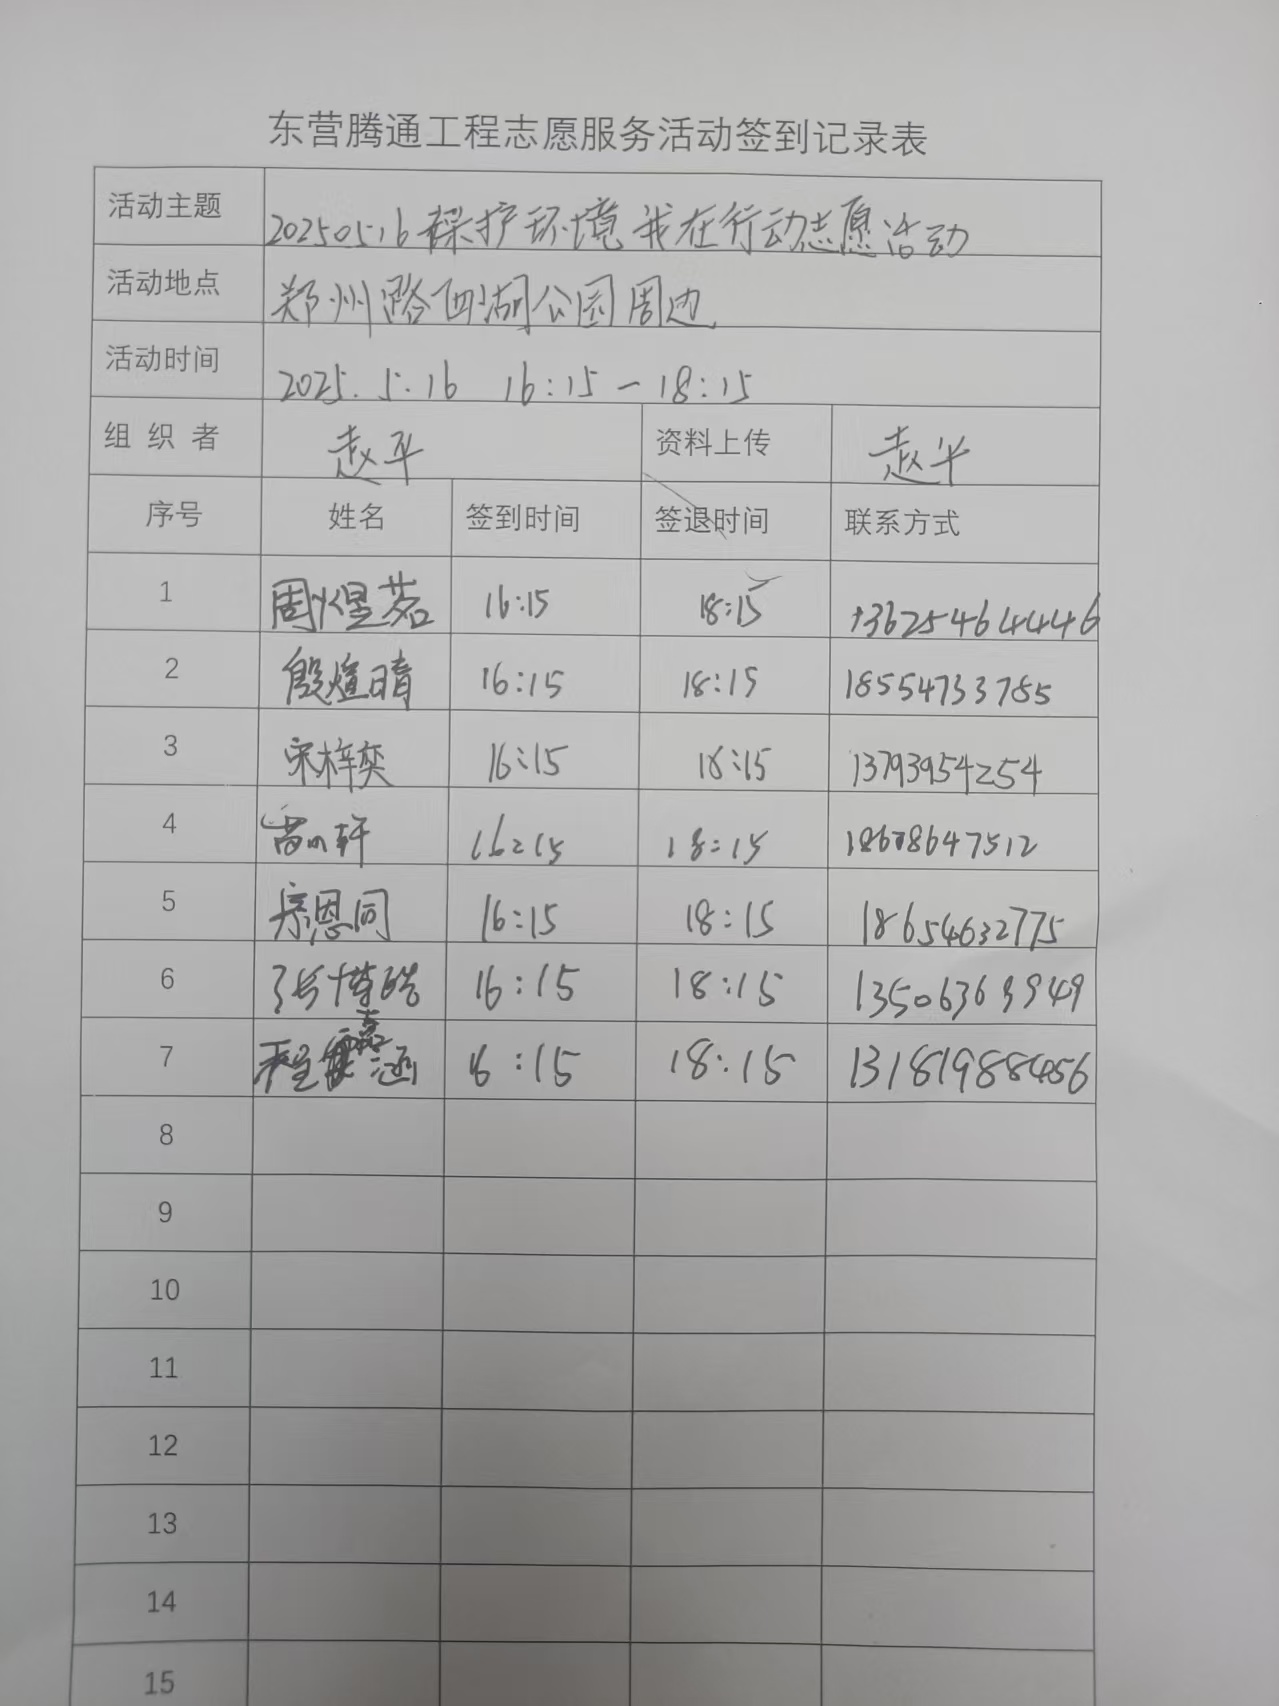 东营腾通工程志愿服务活动签到记录表
活动主题 20250516保护环境我在行动志愿活动
活动地点 郑州路西湖公园周边
活动时间 2025.5.16 16:15—18:15
组织者 赵平 资料上传 赵平
序号 姓名 签到时间 签退时间 联系方式
1 周煜茗 16:15 18:15 13625464446
2 殷煊晴 16:15 18:15 18554733785
3 宋梓奕 16:15 18:15 13793954254
4 轩 16:15 18:15 18678647512
5 宗恩同 16:15 18:15 18654632775
6 张博皓 16:15 18:15 13506363949
7 程嘉涵 16:15 18:15 13181988456
8
9
10
11
12
13
14
15